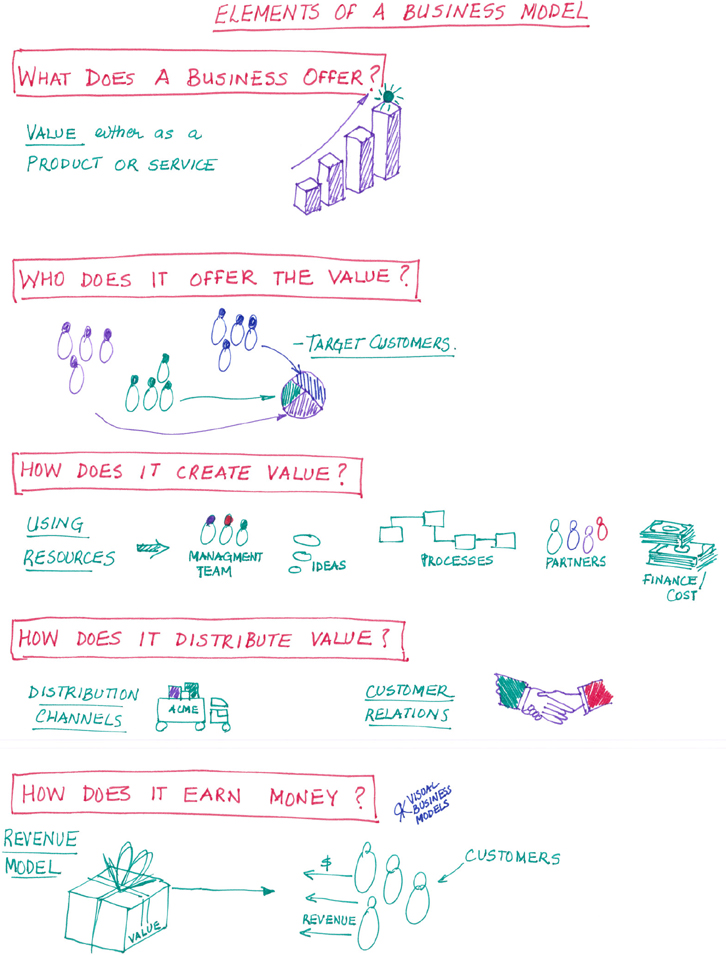 ELEMENTS OF A BUSINESS MODEL
WHAT DOES A BUSINESS OFFER?
VALUE either as a
PRODUCT OR SERVICE
WHO DOES IT OFFER THE VALUE?
- TARGET CUSTOMERS.
HOW DOES IT CREATE VALUE?
USING
RESOURCES
MANAGMENT
TEAM
IDEAS
PROCESSES
PARTNERS
FINANCE/
COST
HOW DOES IT DISTRIBUTE VALUE?
DISTRIBUTION
CHANNELS
ACME
CUSTOMER
RELATIONS
HOW DOES IT EARN MONEY?
VISUAL
BUSINESS
MODELS
REVENUE
MODEL
VALUE
$
REVENUE
CUSTOMERS